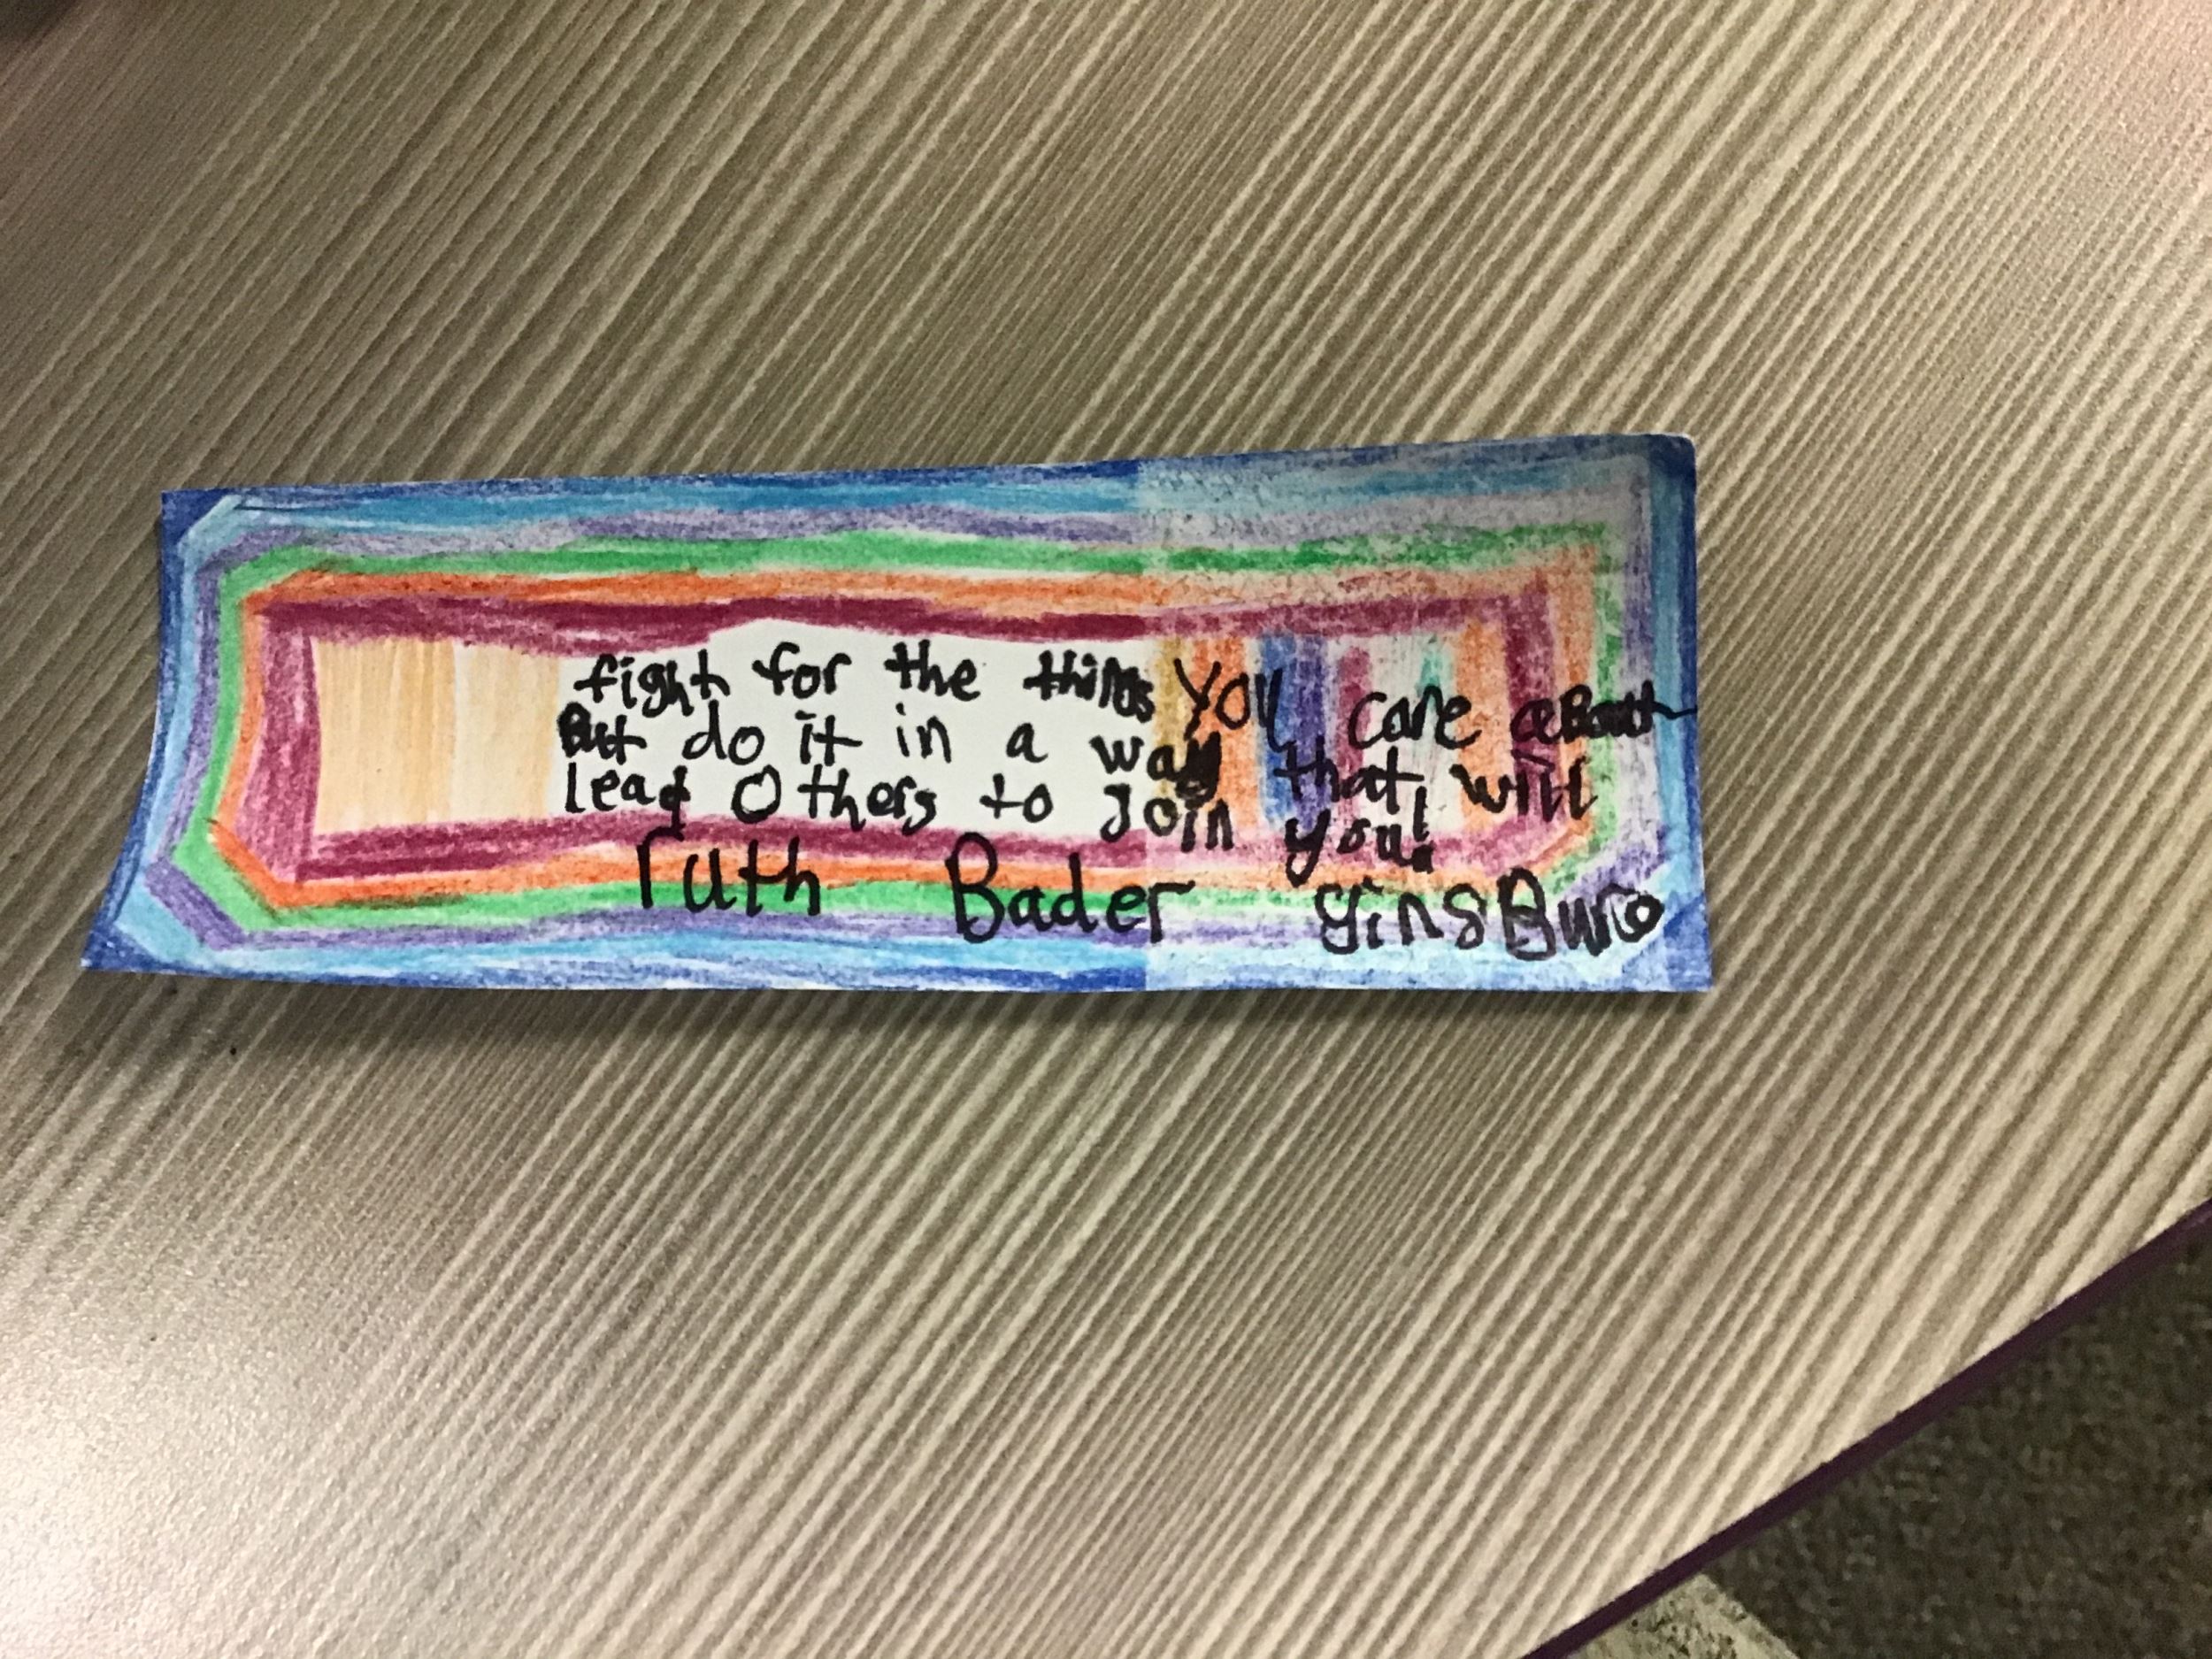 fight for the things you care about
But do it in a way that will
lead Others to join you!
ruth Bader ginsBurg